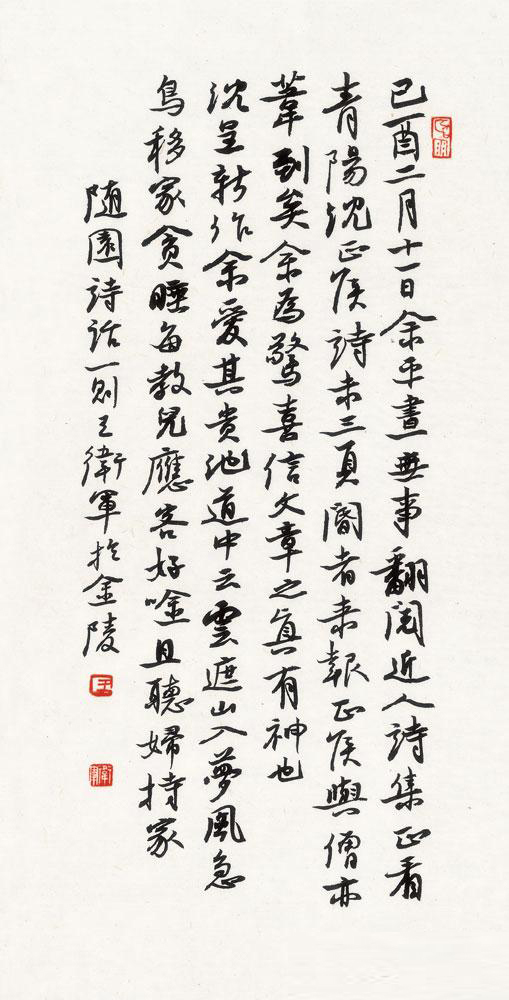 己酉二月十一日余平晝無事翻閱近人詩集正看
青陽沈正侯詩未三頁閽者来報正侯與僧亦
葦到矣余為驚喜信文章之真有神也
沈呈新作余愛其贵池道中云雲遮山入夢風急
鳥移家貪睡每教兒應客好吟且聽婦持家
随園詩話一則王衛軍於金陵